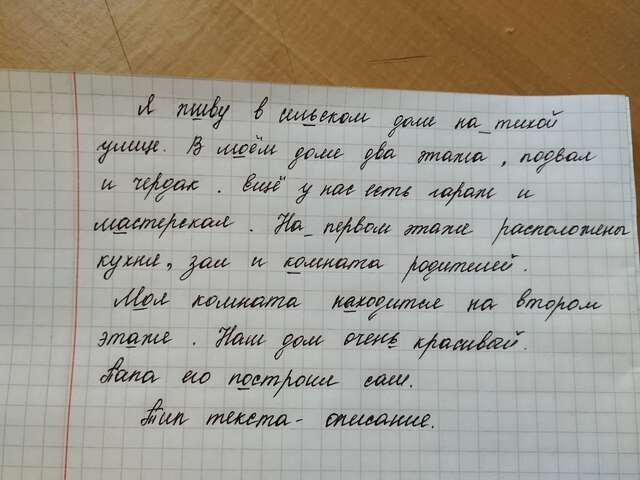 Я живу в доме на тихой
улице. В моей доме два этажа, подвал
и чердак. Ещё у нас есть гараж и
мастерская. На первом этаже расположена
кухня, зал и комната родителей.
Моя комната находится на втором
этаже. Наш дом очень красивый.
Папа его построил сам.
Тип текста - описание.